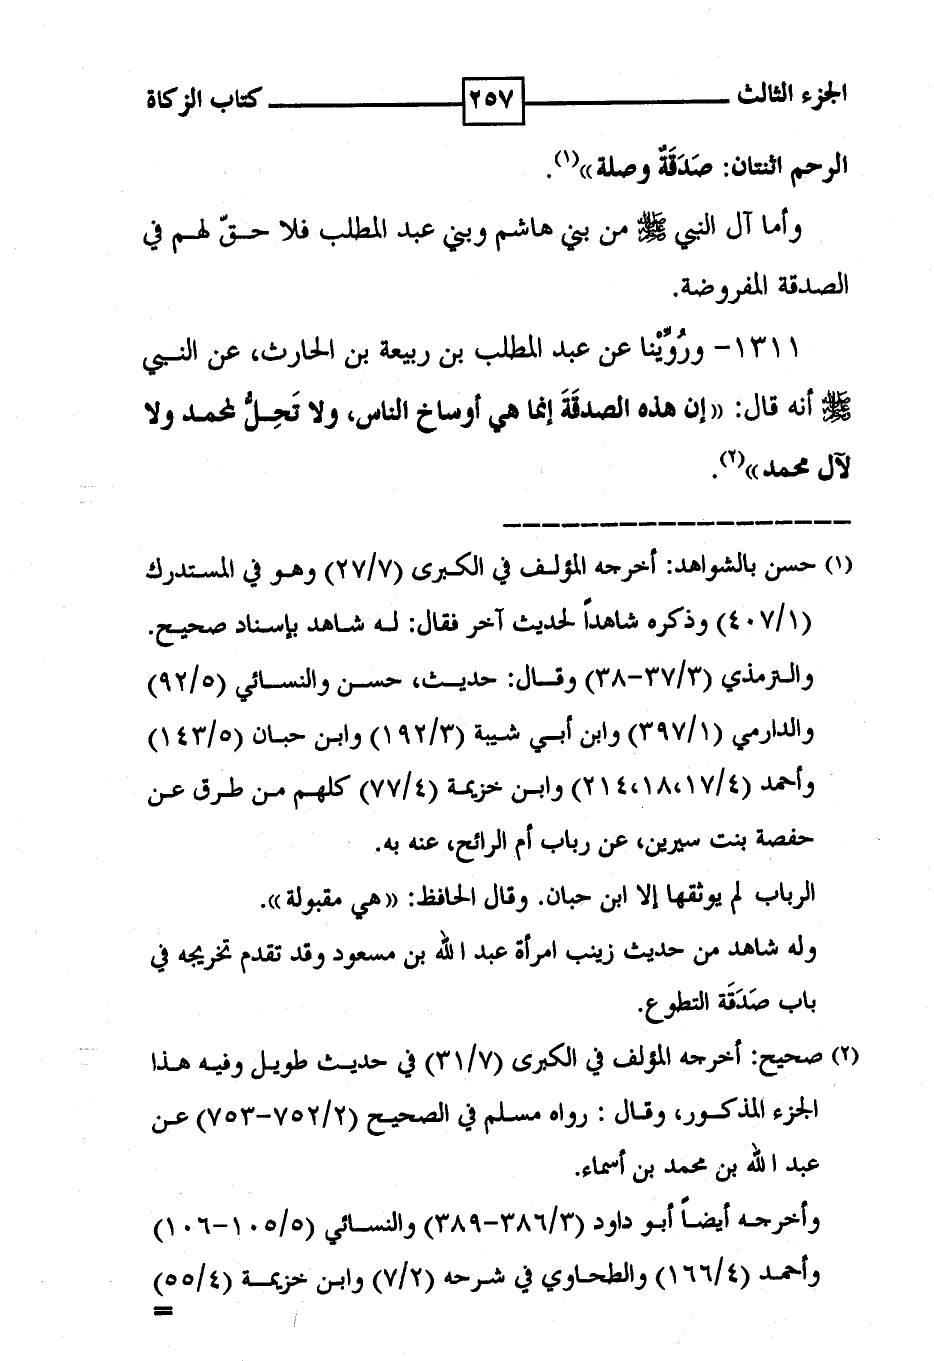 الجزء الثالث ٢٥٧ كتاب الزكاة
الرحم اثنتان: صَدَقَةٌ وصلة»(١).
وأما آل النبي ﷺ من بني هاشم وبني عبد المطلب فلا حقّ لهم في
الصدقة المفروضة.
١٣١١- ورُوِّيْنا عن عبد المطلب بن ربيعة بن الحارث، عن النبي
ﷺ أنه قال: «إن هذه الصدقَةَ إنما هي أوساخ الناس، ولا تَحِلُّ لمحمد ولا
لآل محمد»(٢).
(١) حسن بالشواهد: أخرجه المؤلف في الكبرى (٢٧/٧) وهو في المستدرك
(٤٠٧/١) وذكره شاهداً لحديث آخر فقال: له شاهد بإسناد صحيح.
والترمذي (٣٧/٣-٣٨) وقال: حديث، حسن والنسائي (٩٢/٥)
والدارمي (٣٩٧/١) وابن أبي شيبة (١٩٢/٣) وابن حبان (١٤٣/٥)
وأحمد (١٧/٤،١٨،٢١٤) وابن خزيمة (٧٧/٤) كلهم من طرق عن
حفصة بنت سيرين، عن رباب أم الرائح، عنه به.
الرباب لم يوثقها إلا ابن حبان. وقال الحافظ: «هي مقبولة».
وله شاهد من حديث زينب امرأة عبد الله بن مسعود وقد تقدم تخريجه في
باب صَدَقَة التطوع.
(٢) صحيح: أخرجه المؤلف في الكبرى (٣١/٧) في حديث طويل وفيه هذا
الجزء المذكور، وقال : رواه مسلم في الصحيح (٧٥٢/٢-٧٥٣) عن
عبد الله بن محمد بن أسماء.
وأخرجه أيضاً أبو داود (٣٨٦/٣-٣٨٩) والنسائي (١٠٥/٥-١٠٦)
وأحمد (١٦٦/٤) والطحاوي في شرحه (٧/٢) وابن خزيمة (٥٥/٤)
=